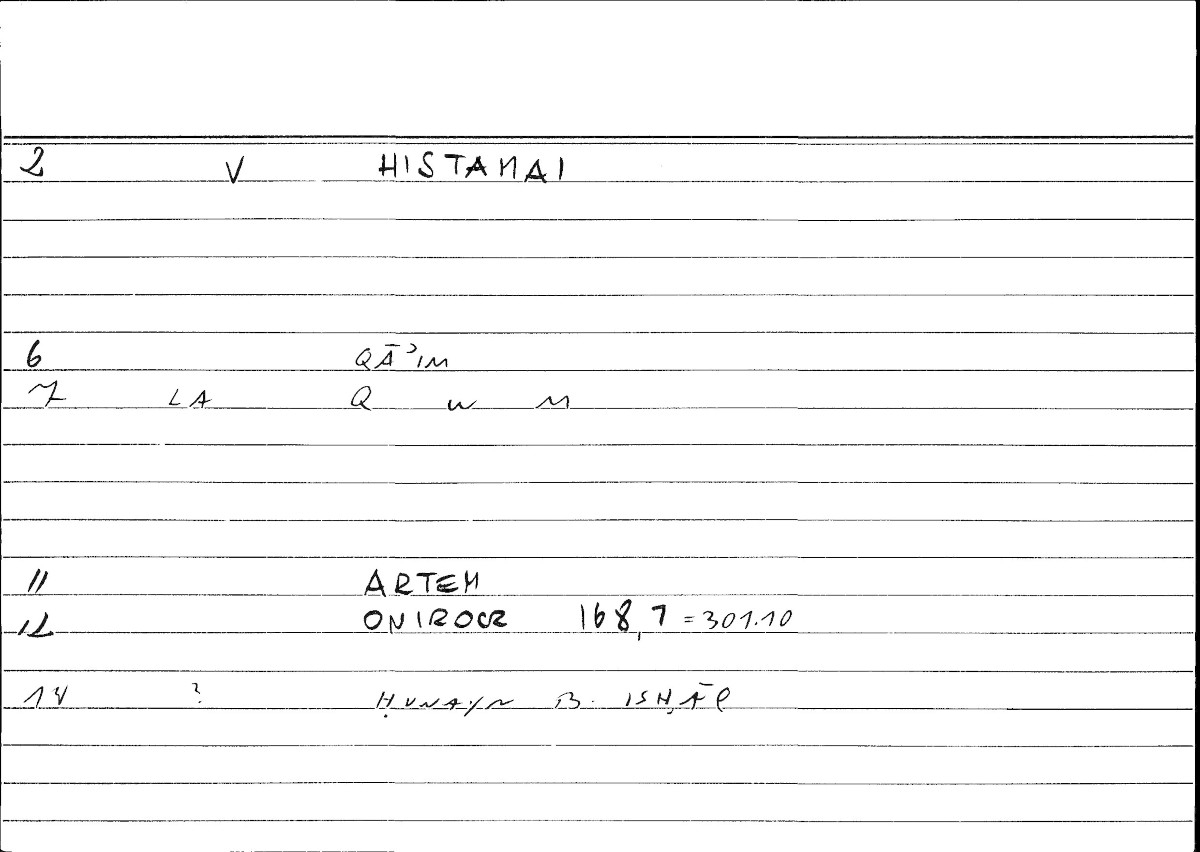 2 V HISTAMAI
6 QĀʾIM
7 LA Q W M
11 ARTEM
12 ONIROCR 168,7 = 301.10
14 ? ḤUNAYN B. ISḤĀQ